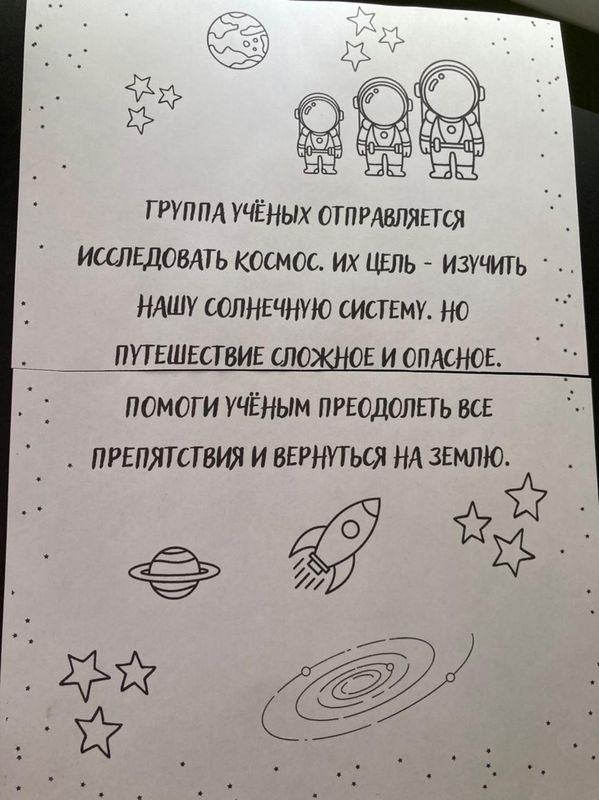 ГРУППА УЧЁНЫХ ОТПРАВЛЯЕТСЯ
ИССЛЕДОВАТЬ КОСМОС. ИХ ЦЕЛЬ - ИЗУЧИТЬ
НАШУ СОЛНЕЧНУЮ СИСТЕМУ. НО
ПУТЕШЕСТВИЕ СЛОЖНОЕ И ОПАСНОЕ.
ПОМОГИ УЧЁНЫМ ПРЕОДОЛЕТЬ ВСЕ
ПРЕПЯТСТВИЯ И ВЕРНУТЬСЯ НА ЗЕМЛЮ.